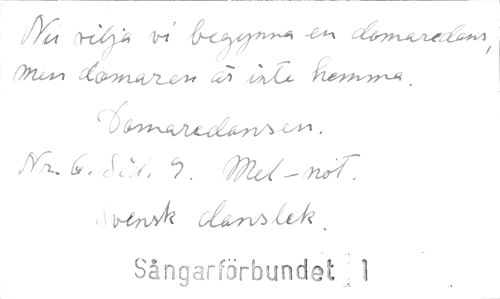 Nu vilja vi begynna en domaredans,
men domaren är inte hemma.
Domaredansen.
Nr. 6. Sid. 9. Mel-not.
Svensk danslek.
Sångarförbundet 1